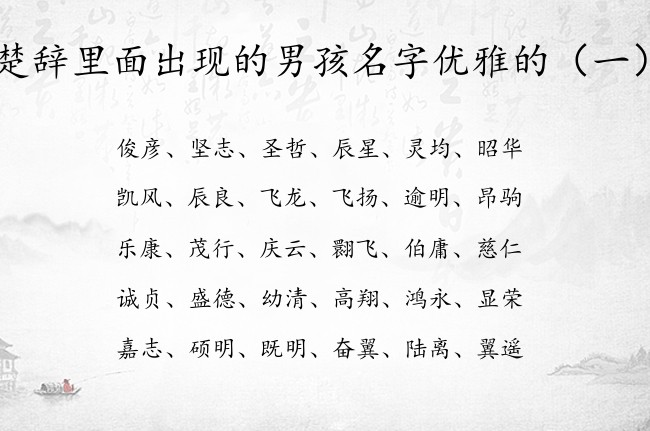 楚辞里面出现的男孩名字优雅的（一）
俊彦、坚志、圣哲、辰星、灵均、昭华
凯风、辰良、飞龙、飞扬、逾明、昂驹
乐康、茂行、庆云、翾飞、伯庸、慈仁
诚贞、盛德、幼清、高翔、鸿永、显荣
嘉志、硕明、既明、奋翼、陆离、翼遥